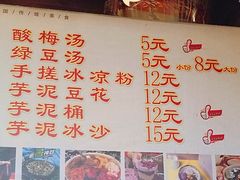 国传统美食
酸梅汤 5元
绿豆汤 5元 小份 8元大份
手搓冰凉粉 12元
芋泥豆花 12元
芋泥桶 12元
芋泥冰沙 15元